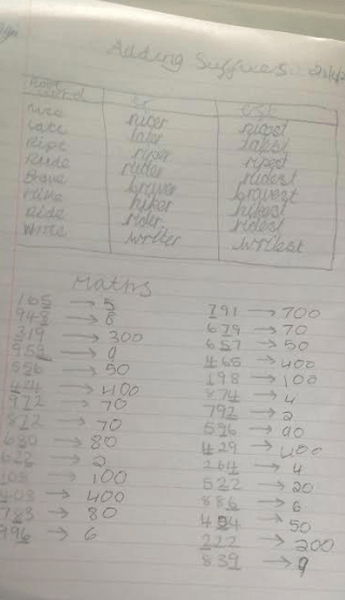 Adding Suffixes
Root word er est
nice nicer nicest
late later latest
Ripe riper ripest
Rude ruder rudest
Brave braver bravest
Hike hiker hikest
Ride rider ridest
Write writer writest
Maths
165 → 5
948 → 8
319 → 300
959 → 9
556 → 50
424 → 400
972 → 70
872 → 70
680 → 80
622 → 2
105 → 100
403 → 400
783 → 80
996 → 6
791 → 700
679 → 70
657 → 50
465 → 400
198 → 100
874 → 4
792 → 2
596 → 90
429 → 400
264 → 4
522 → 20
886 → 6
454 → 50
222 → 200
839 → 9